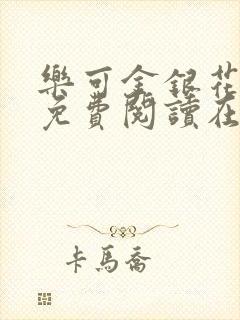 樂可金銀花
免費閱讀在
卡馬喬